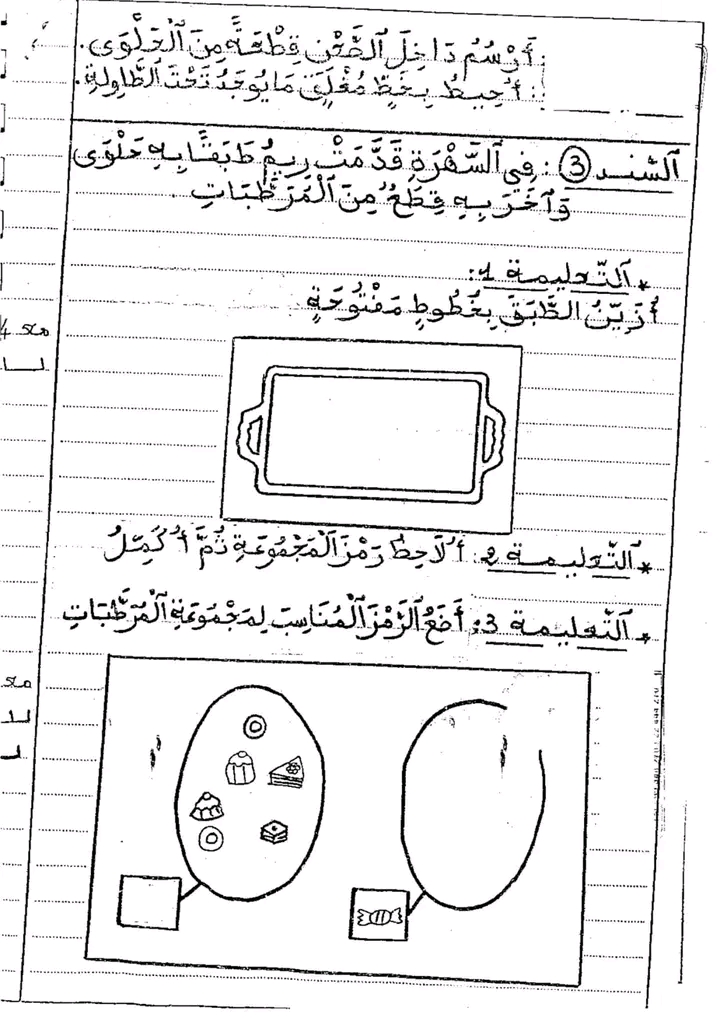 أَرْسُمُ دَاخِلَ الصَّحْنِ قِطْعَةً مِنَ الْحَلْوَى.
أُحِيطُ بِخَطٍّ مُغْلَقٍ مَا يُوجَدُ تَحْتَ الطَّاوِلَةِ.
السّند 3 : فِي السَّهْرَةِ قَدَّمَتْ رِيمُ طَبَقًا بِهِ حَلْوَى
وَآخَرَ بِهِ قِطَعٌ مِنَ الْمُرَطَّبَاتِ
* التّعليمة 1:
أُزَيِّنُ الطَّبَقَ بِخُطُوطٍ مَفْتُوحَةٍ
* التّعليمة 2: أُلَاحِظُ رَمْزَ الْمَجْمُوعَةِ ثُمَّ أُكْمِلُ
* التّعليمة 3: أَضَعُ الرَّمْزَ الْمُنَاسِبَ لِمَجْمُوعَةِ الْمُرَطَّبَاتِ
مع 4
مع